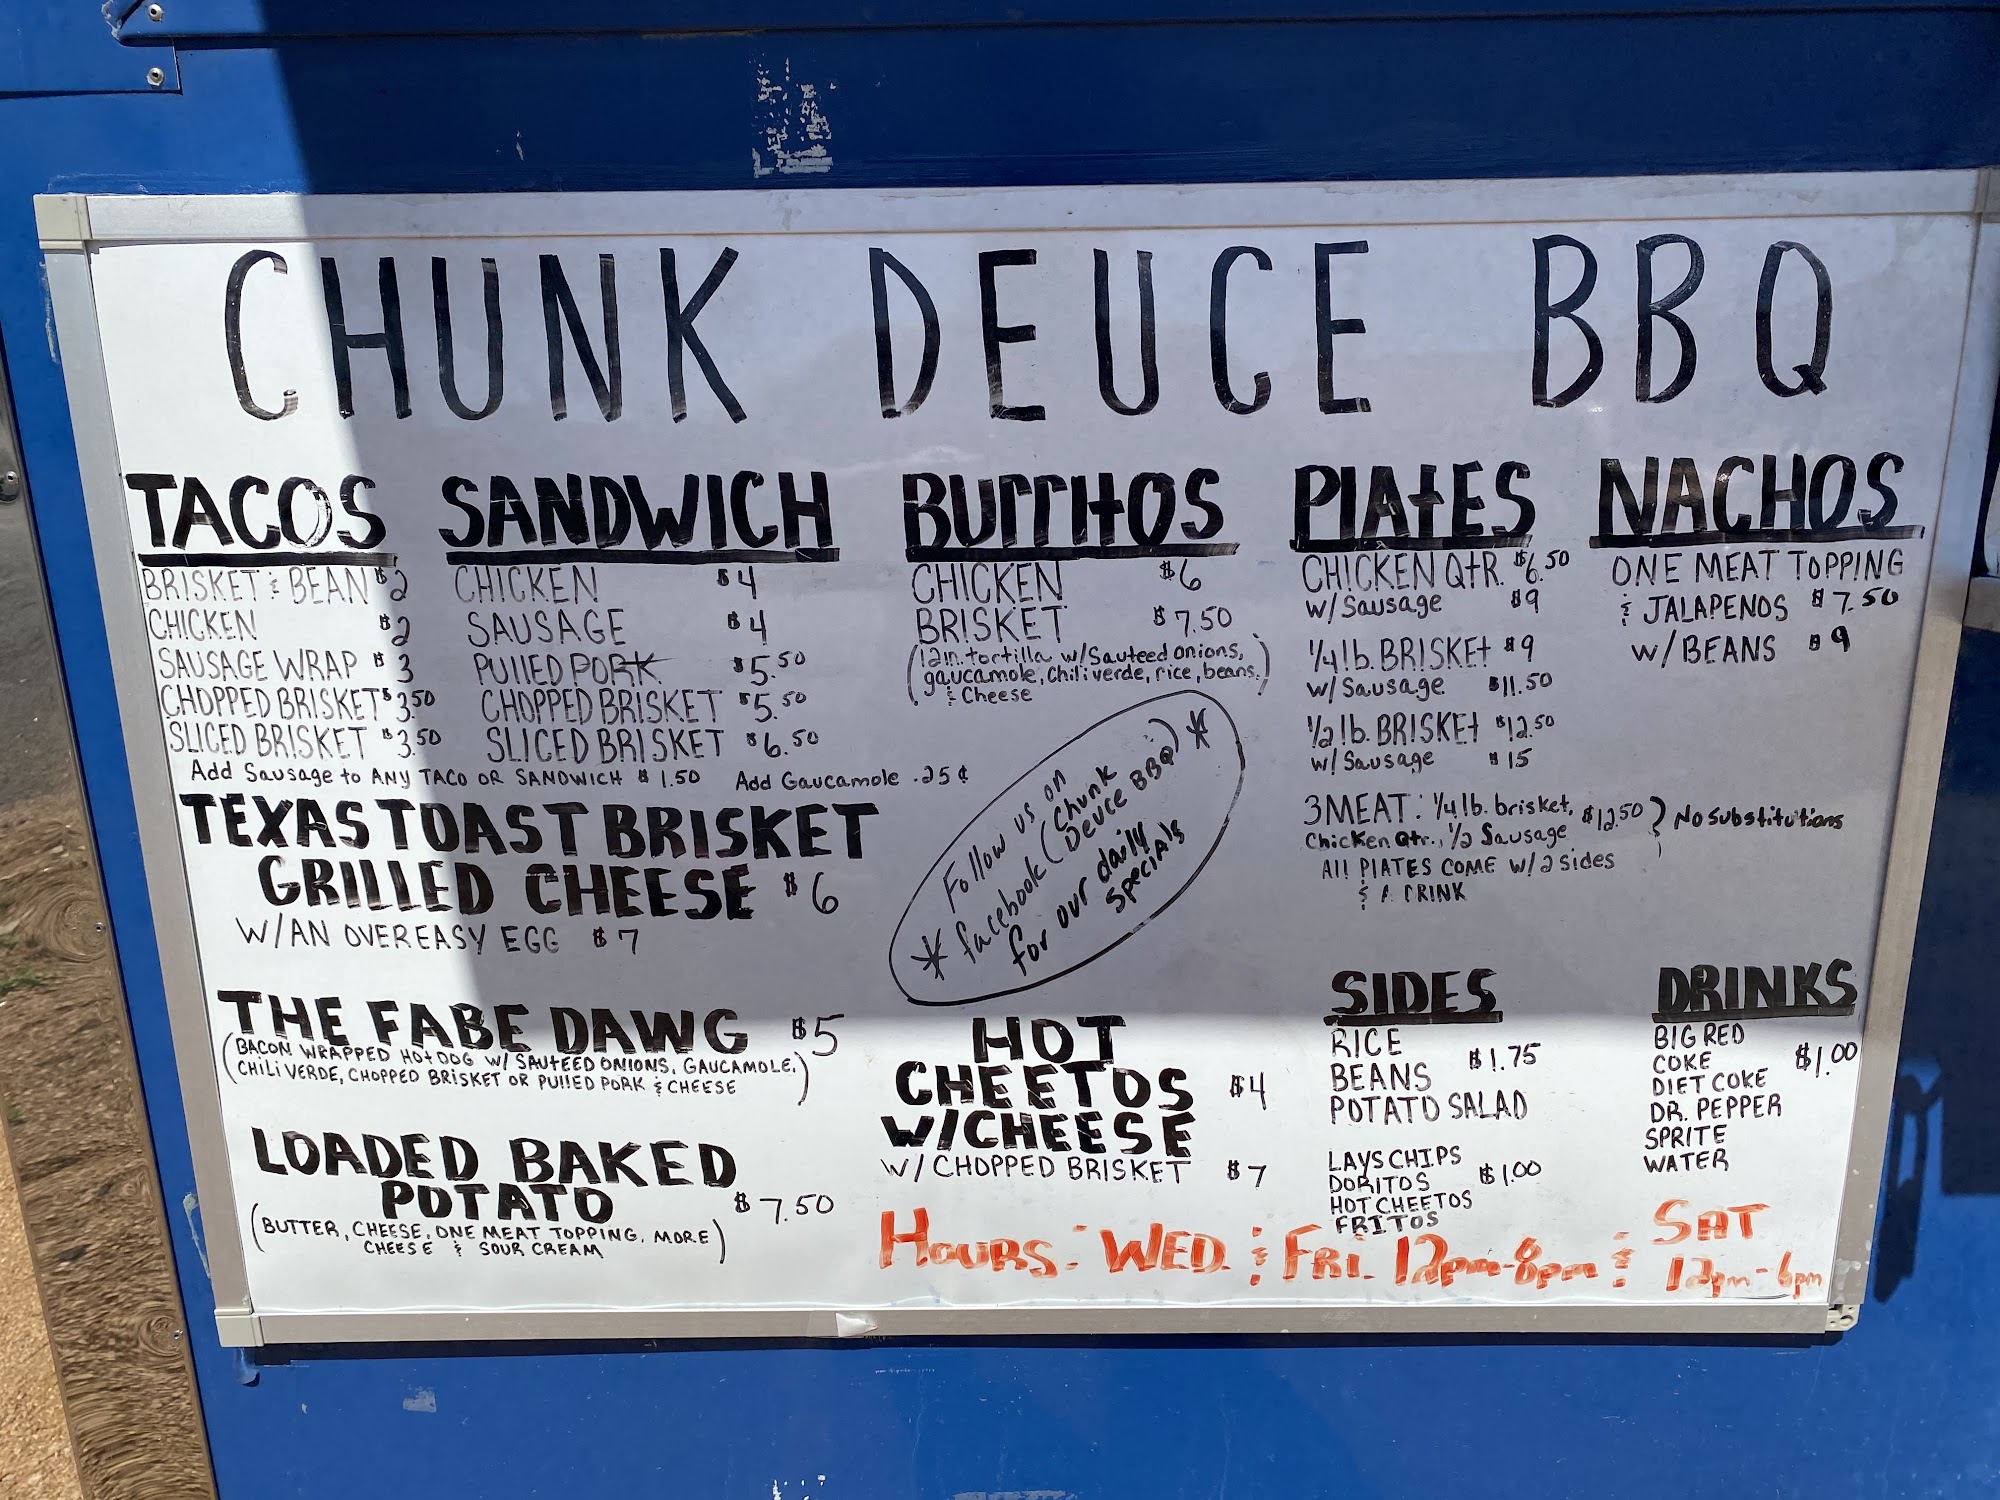 CHUNK DEUCE BBQ
TACOS
BRISKET & BEAN $2
CHICKEN $2
SAUSAGE WRAP $3
CHOPPED BRISKET $3.50
SLICED BRISKET $3.50
SANDWICH
CHICKEN $4
SAUSAGE $4
PUllED PORK $5.50
CHOPPED BRISKET $5.50
SLICED BRISKET $6.50
Add Sausage to ANY TACO OR SANDWICH $1.50 Add Gaucamole .25¢
BUrritOS
CHICKEN $6
BRISKET $7.50
(12in. tortilla w/Sauteed onions,
gaucamole, Chili verde, rice, beans,
& Cheese)
PlAtES
CHICKEN QtR. $6.50
w/Sausage $9
1/4 lb. BRISKEt $9
w/Sausage $11.50
1/2 lb. BRISKEt $12.50
w/Sausage $15
3 MEAT: 1/4 lb. brisket,
Chicken Qtr., 1/2 Sausage $12.50 } No substitutions
All PlATES COME w/2 sides
& A DRINK
NACHOS
ONE MEAT TOPPING
& JALAPENOS $7.50
W/BEANS $9
TEXAS TOAST BRISKET
GRILLED CHEESE $6
W/AN OVER EASY EGG $7
* Follow us on
facebook (Chunk
Deuce BBQ) *
for our daily
specials
THE FABE DAWG $5
(BACON WRAPPED HOt DOG W/ SAUtEED ONIONS, GAUCAMOLE,
CHiLi VERDE, CHOPPED BRISKET OR PUllED PORK & CHEESE)
LOADED BAKED
POTATO $7.50
(BUTTER, CHEESE, ONE MEAT TOPPING, MORE
CHEESE & SOUR CREAM)
HOT
CHEETOS $4
W/CHEESE
W/ CHOPPED BRISKET $7
SIDES
RICE
BEANS $1.75
POTATO SALAD
LAYS CHIPS
DORITOS $1.00
HOT CHEETOS
FRITOS
DRINKS
BIG RED
COKE $1.00
DIET COKE
DR. PEPPER
SPRITE
WATER
HOURS: WED. & FRI. 12pm-8pm & SAT
12pm-6pm